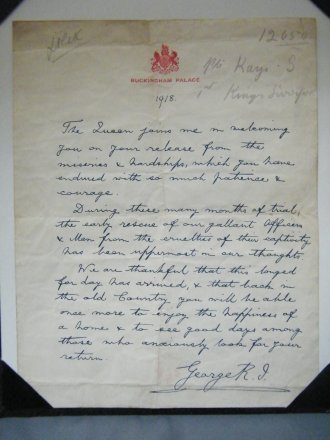 filed
12656
BUCKINGHAM PALACE
Pte Kays. S
1st Kings Liverpool
1918.
The Queen joins me in welcoming
you on your release from the
miseries & hardships, which you have
endured with so much patience &
courage.
During these many months of trial,
the early rescue of our gallant Officers
& Men from the cruelties of their captivity
has been uppermost in our thoughts.
We are thankful that this longed
for day has arrived, & that back in
the old Country you will be able
once more to enjoy the happiness of
a home & to see good days among
those who anxiously look for your
return.
George R.I.